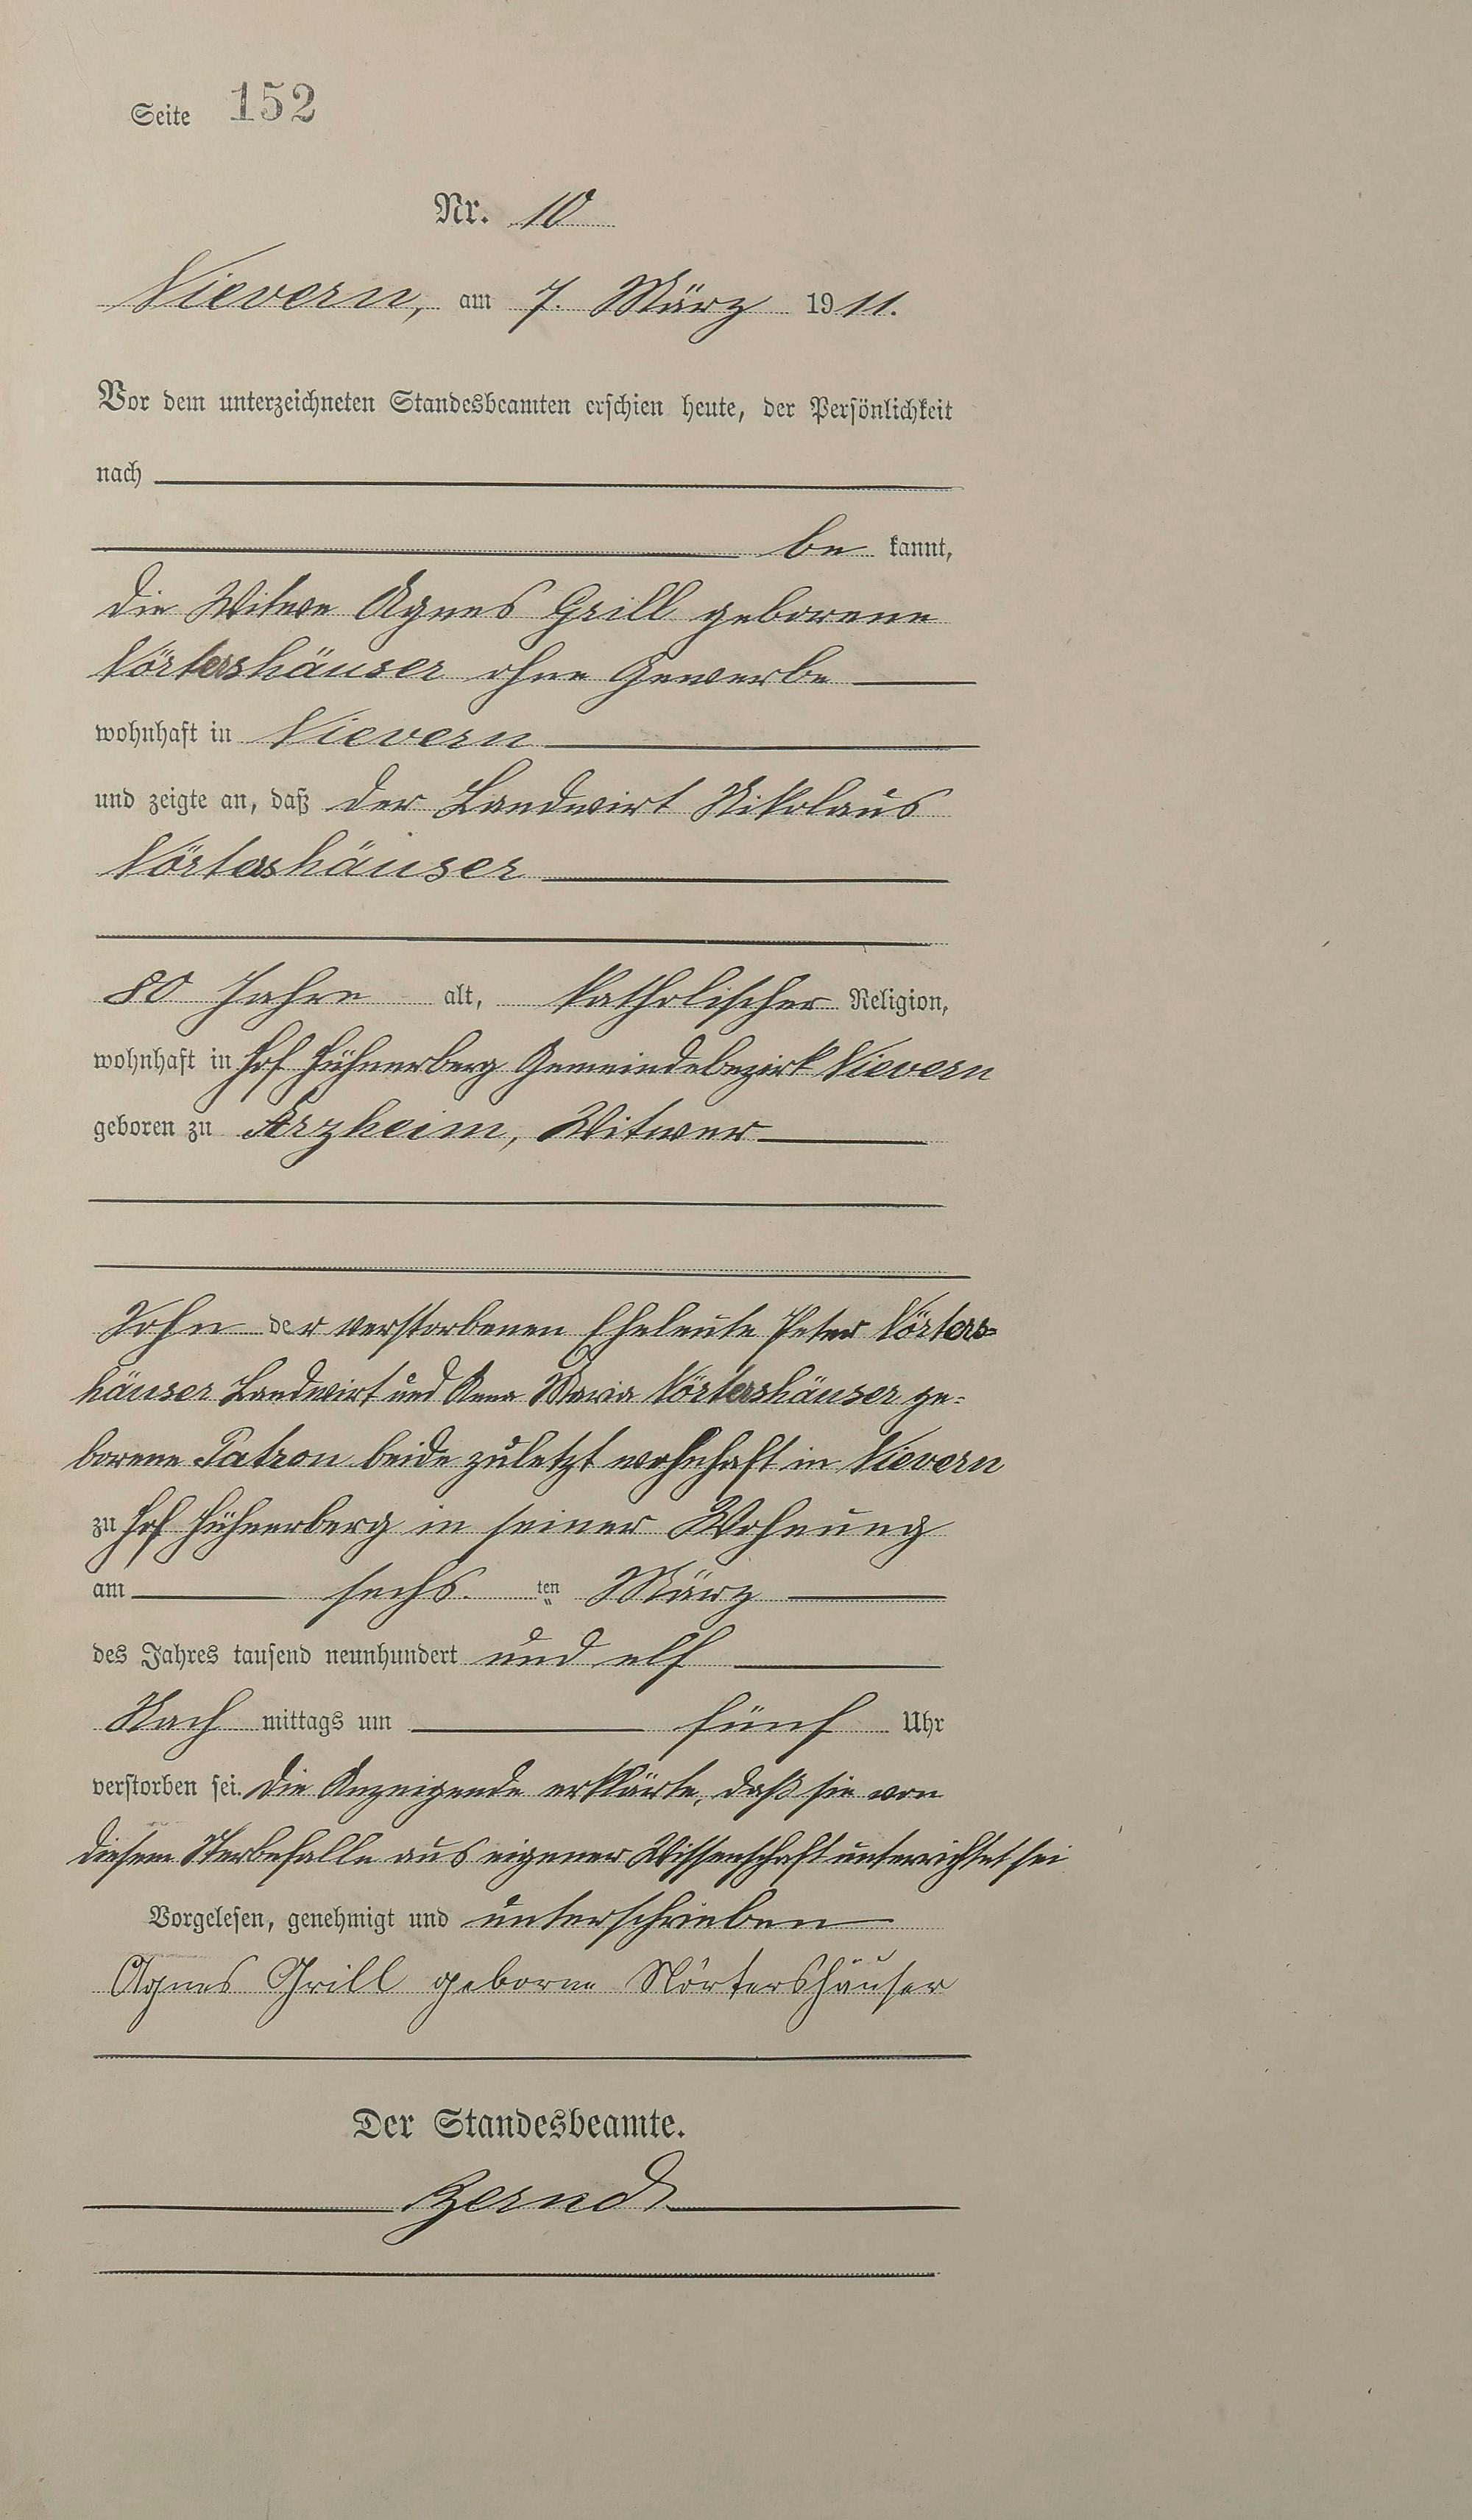 Seite 152
Nr. 10
Nievern, am 7. März 1911.
Vor dem unterzeichneten Standesbeamten erschien heute, der Persönlichkeit
nach
be kannt,
die Witwe Agnes Grill geborene
Nörtershäuser ohne Gewerbe
wohnhaft in Nievern
und zeigte an, daß der Landwirt Nikolaus
Nörtershäuser
80 Jahre alt, katholischer Religion,
wohnhaft in Hof Hühnerberg Gemeindebezirk Nievern
geboren zu Arzheim, Witwer
Sohn der verstorbenen Eheleute Peter Nörters=
häuser Landwirt und Anna Maria Nörtershäuser ge=
borene Patron beide zuletzt wohnhaft in Nievern
zu Hof Hühnerberg in seiner Wohnung
am sechs. ten März
des Jahres tausend neunhundert und elf
Nach mittags um fünf Uhr
verstorben sei. Die Anzeigende erklärte, daß sie von
diesem Sterbefalle aus eigener Wissenschaft unterrichtet sei
Vorgelesen, genehmigt und unterschrieben
Agnes Grill geborne Nörtershäuser
Der Standesbeamte.